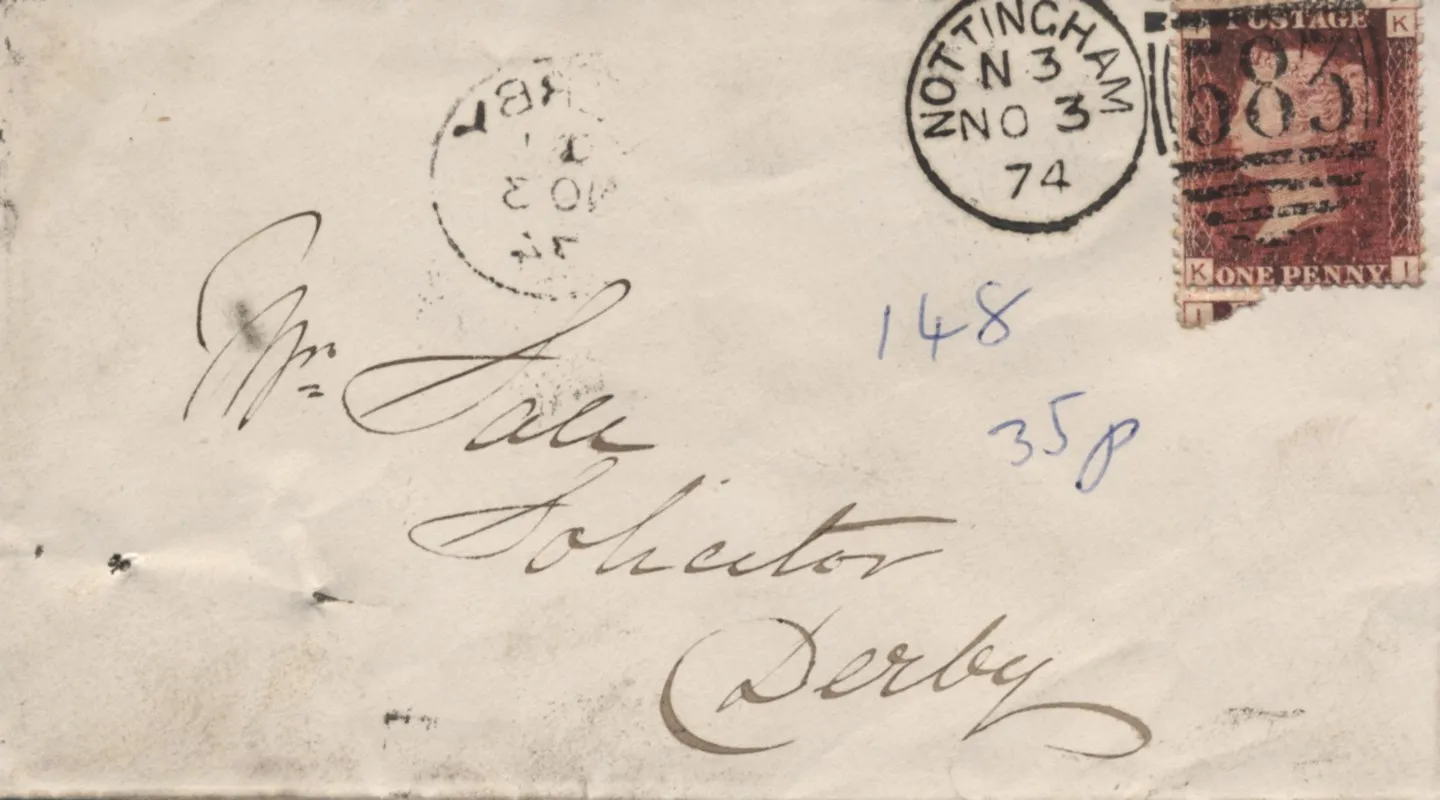 NOTTINGHAM
N 3
NO 3
74
POSTAGE
K
583
K ONE PENNY I
I
RBY
NO 3
74
148
35p
Mr Sale
Solicitor
Derby